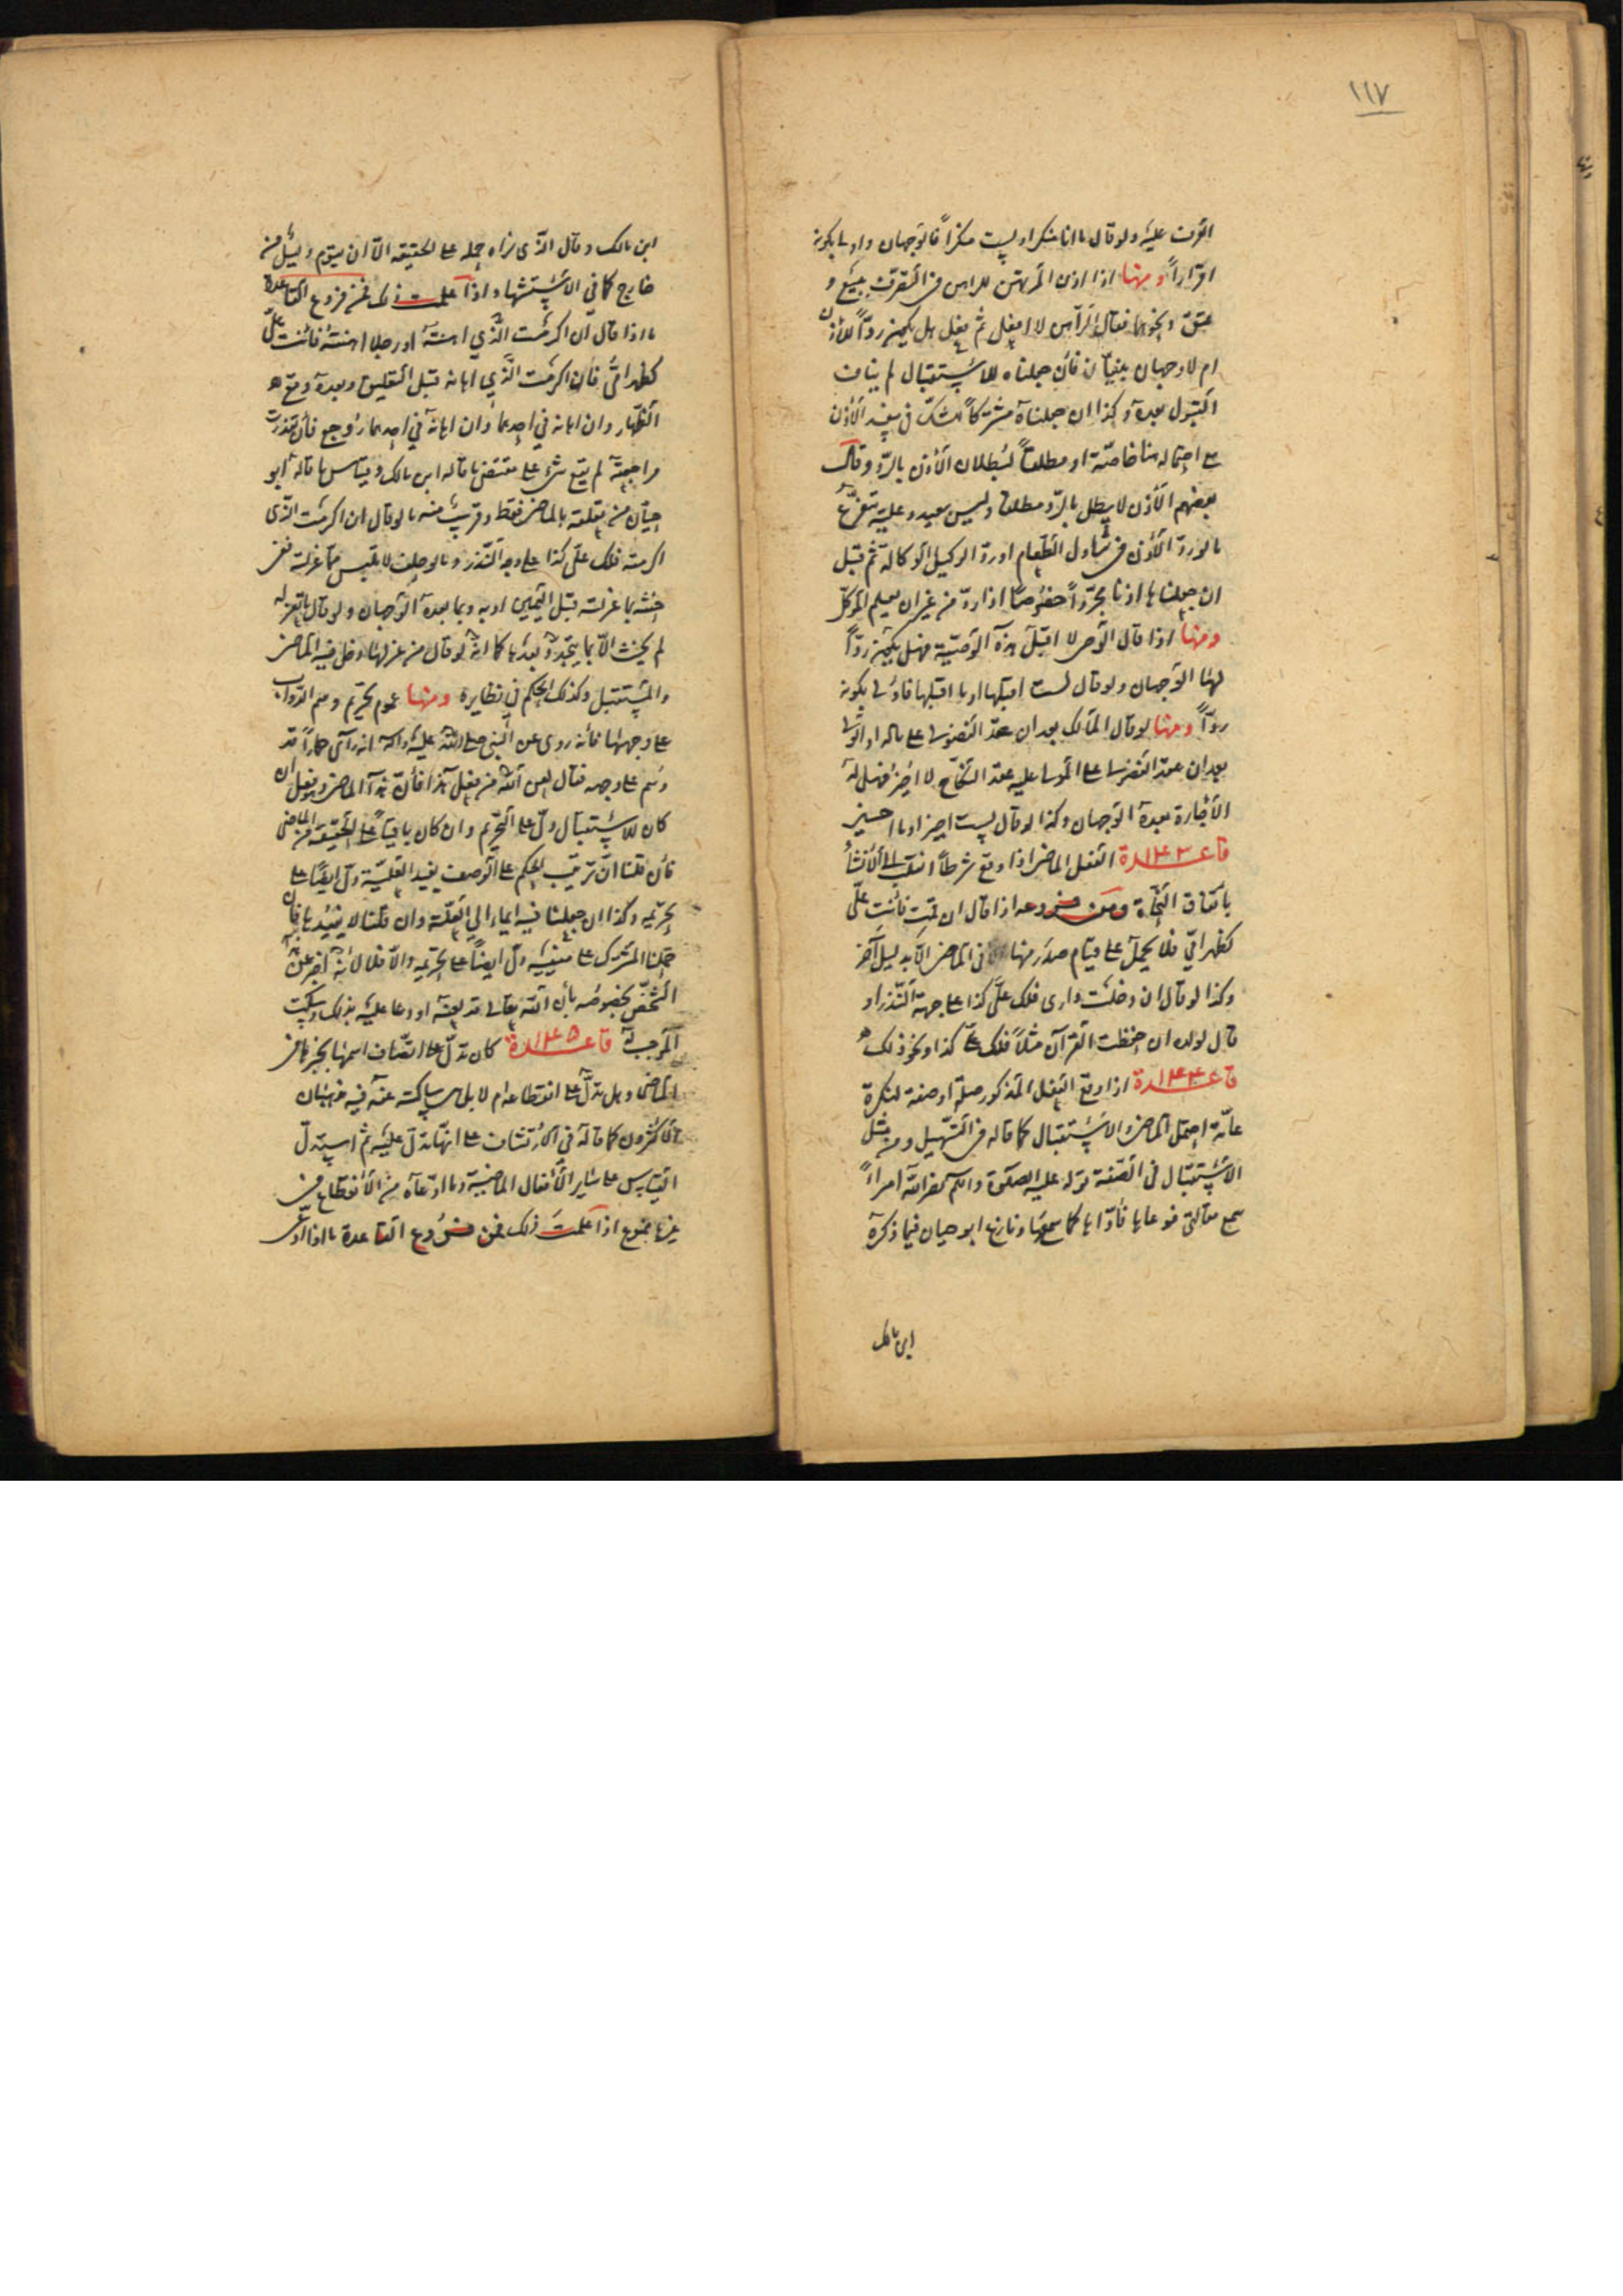 ١١٧
اقررت عليه ولو قال ما انا منكر او لست منكراً فالوجهان واولى بكونه
اقراراً ومنها اذا اذن المرتهن للراهن في التصرف ببيع و
عتق ونحوهما فقال الراهن لا افعل ثم فعل هل يكون رداً للاذن
ام لا وجهان فان جعلناه للاستقبال لم يناف
القبول بعده وكذا ان جعلناه مشتركاً للشك في الاذن
احتماله هنا خاصة او مطلقاً لبطلان الاذن بالرد وقال
بعضهم الاذن لا يبطل بالرد مطلقا وليس ببعيد وعليه يتفرع
ما لو رد الاذن في تناول الطعام او رد الوكيل الوكالة ثم قبل
ان جعلناها اذنا مجرداً خصوصاً اذا رد من غير ان يعلم الموكل
ومنها اذا قال الوصي لا اقبل هذه الوصية فهل يكون رداً
لها الوجهان ولو قال لست اقبلها او ما اقبلها فاولى بكونه
رداً ومنها لو قال المالك بعد ان عقد الفضولي على ماله او المولى
بعد ان عقد الفضولي على المولى عليه عقد النكاح لا اجيز فهل له
الاجازة بعده الوجهان وكذا لو قال لست اجيز او ما اجيز
قاعدة ١٤٣ الفعل الماضي اذا وقع شرطاً انقلب الى الانشاء
باتفاق النحاة ومن فروعه اذا قال ان قمت فانت علي
كظهر امي فلا يحمل على قيام صدر منها في الماضي الا بدليل آخر
وكذا لو قال ان دخلت داري فلك علي كذا على جهة النذر او
قال لولده ان حفظت القرآن مثلاً فلك علي كذا ونحو ذلك
قاعدة ١٤٤ اذا وقع الفعل المذكور صلة او صفة لنكرة
عامة احتمل الماضي والاستقبال كما قاله في التسهيل ومن مثل
الاستقبال في الصفة قوله عليه الصلوة والسلم نضر الله امرأً
سمع مقالتي فوعاها فاداها كما سمعها ونازع ابو حيان فيما ذكره
ابن مالك
ابن مالك وقال الذي نراه حمله على الحقيقة الا ان يقوم دليل من
خارج كما في الاستشهاد واذا علمت ذلك فمن فروع القاعدة
ما اذا قال ان اكرمت الذي اهنته او رجلا اهنته فانت علي
كظهر امي فان اكرمت الذي اهانه قبل التعليق وبعده وقع
الظهار وان اهانه في احدهما وان اهانه في احدهما روجع فان تعذرت
مراجعته لم يقع شيء على مقتضى ما قاله ابن مالك وقياس ما قاله ابو
حيان من تعلقه بالماضي فقط وقريب منه ما لو قال ان اكرمت الذي
اكرمته فلك علي كذا على وجه النذر وما لو حلف لا يلبس مما غزلته ففي
حنثه بما غزلته قبل اليمين او به وبما بعده الوجهان ولو قال ما تغزله
لم يحنث الا بما يتجدد بعدها كما انه لو قال من غزلها دخل فيه الماضي
والمستقبل وكذلك الحكم في نظايره ومنها عموم تحريم وسم الدواب
على وجهها فانه روي عن النبي صلى الله عليه وآله انه رأى حماراً قد
وسم على وجهه فقال لعن الله من فعل هذا فان هذا الماضي وهو فعل ان
كان للاستقبال دل على التحريم وان كان باقياً على الحقيقة من الماضي
فان قلنا ان ترتيب الحكم على الوصف يفيد العلية دل ايضاً على
تحريمه وكذا ان جعلنا فيه ايماء الى العلة وان قلنا لا يفيدها فان
حملنا المشترك على معنييه دل ايضاً على تحريمه والا فلا لانه اخبر عن
الشخص بخصوصه بان الله تعالى قد لعنه او دعا عليه بذلك وسكت
الموجب قاعدة ١٤٥ كان تدل على اتصاف اسمها بخبرها في
الماضي وهل تدل على انقطاعه ام لا بل هي ساكتة عنه فيه مذهبان
الاكثرون كما قاله في الارتشاف على انها تدل عليه ثم استدل
القياس على ساير الافعال الماضية وما ادعاه من الانقطاع في
غيرها ممنوع اذا علمت ذلك فمن فروع القاعدة ما اذا ادعى